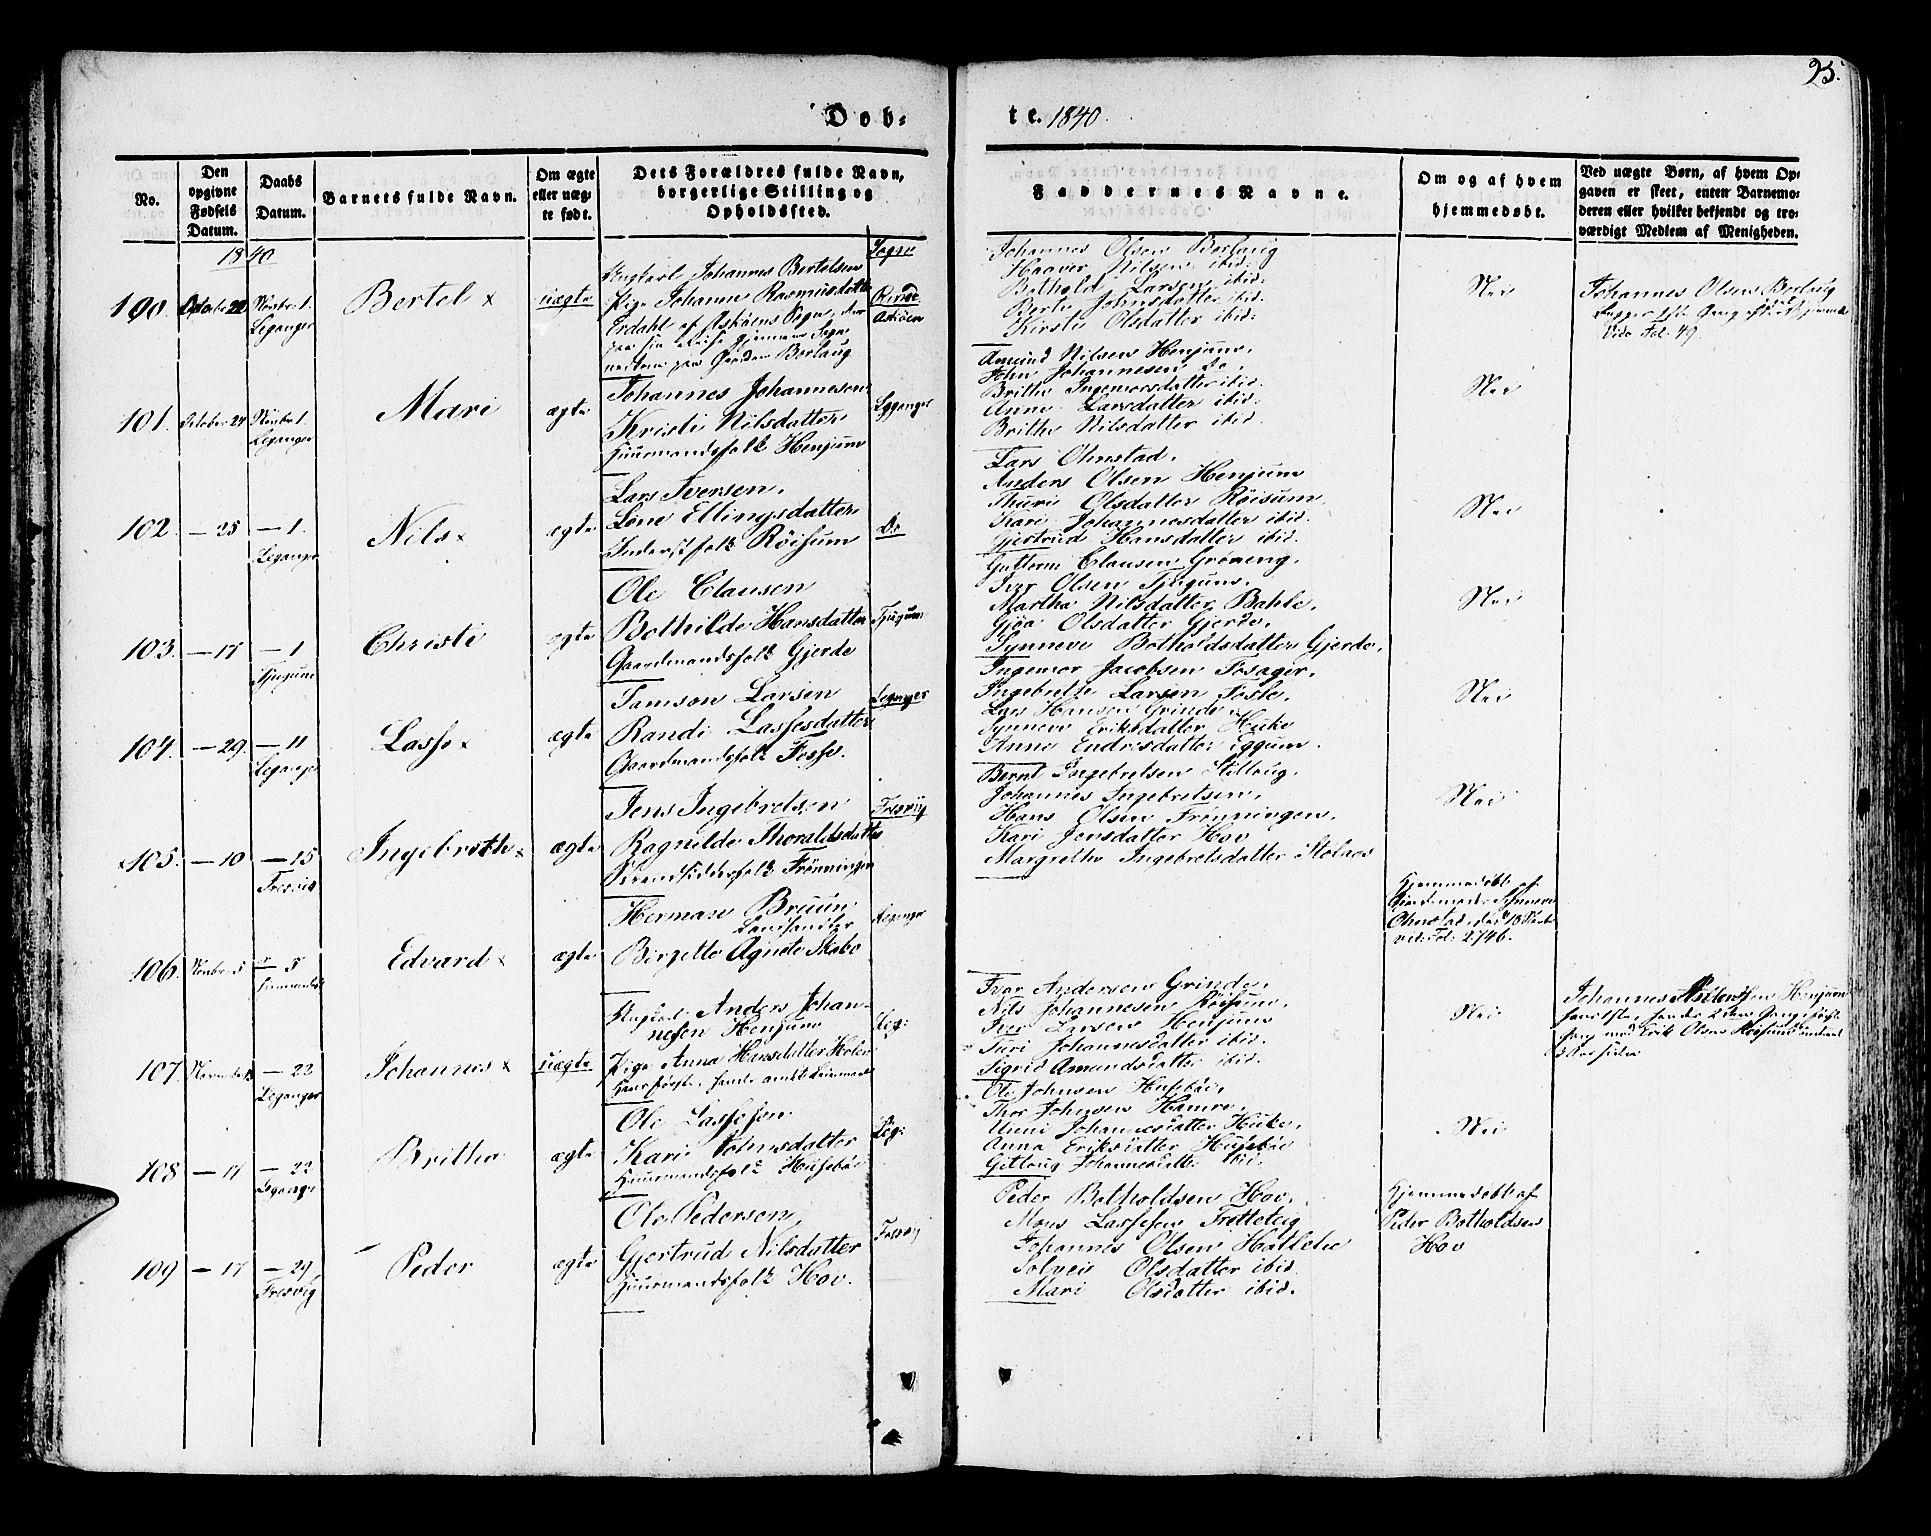 25.
Døb-
te. 1840.
No.
Den opgivne Fødsels Datum.
Daabs Datum.
Barnets fulde Navn.
Om ægte eller uægte født.
Dets Forældres fulde Navn, borgerlige Stilling og Opholdssted.
Faddernes Navne.
Om og af hvem hjemmedøbt.
Ved uægte Børn, af hvem Opgaven er skeet, enten Barnemoderen eller hvilket bekjendt og troværdigt Medlem af Menigheden.
1840
Sogne
100.
October 22
Novbr 1.
Leganger
Bertel x
uægte
Ungkarl Johannes Bertelsen
Pige Johanna Rasmusdatter
af Askøens Sogn, der
paa sin Reise gjennem Sognet
paa Gaarden Berlaug
Askøen
Johannes Olsen Berlaug
Haaver Nilsen ibid:
Bothold Larsen ibid:
Berte Johnsdatter ibid:
Kirsti Olsdatter ibid:
Nei
Johannes Olsen Berlaug
Vide Fol. 49.
101.
October 24
Novbr 1.
Leganger
Mari
ægte
Johannes Johannesen
Kristi Nilsdatter
Huusmandsfolk Henjum
Leganger
Amund Nilsen Henjum.
John Johannesen do.
Britha Ingemorsdatter ibid.
Anne Larsdatter ibid.
Britha Nilsdatter ibid.
Nei
102.
— 25
— 1.
Leganger
Nils x
ægte
Lars Iversen.
Lone Ellingsdatter
Inderstfolk Röisum
Do
Lars Ohnstad.
Anders Olsen Henjum
Thuri Olsdatter Röisum.
Kari Johannesdatter ibid.
Gjertrud Hansdatter ibid.
Nei
103.
— 17
— 1
Tjugum
Christi
ægte
Ole Clausen
Bothilde Hansdatter
Gaardmandsfolk Gjerde
Tjugum
Guttorm Clausen Gröneng.
Iver Olsen Tjugum.
Martha Nilsdatter Bahle.
Gjöa Olsdatter Gjerde.
Synneve Botholdsdatter Gjerde.
Nei
104.
— 29.
— 11
Leganger
Lasse x
ægte
Tamson Larsen
Randi Lassesdatter
Gaardmandsfolk Fosse.
Leganger
Ingemor Jacobsen Fosager.
Ingebrith Larsen Foste.
Lars Hansen Grinde.
Synneve Eriksdatter Huke
Anne Endresdatter Eggum.
Nei
105.
— 10
— 15
Fresvig
Ingebreth x
ægte
Jens Ingebretsen
Ragnilde Thoraldsdatter
Strandsidderfolk Frönningen
Fresvig
Bernt Ingebretsen Stilloug.
Johannes Ingebretsen.
Hans Olsen Frenningen.
Kari Jensdatter Hov
Margrethe Ingebretsdatter
Nei
106.
Novbr 5
— 5
Edvard x
ægte
Herman Bruun.
Landhandler
Birgette Agnete Skabo
Leganger
Hjemmedøbt af
Gjordemoder Synneve
Ohnstad, den 13 Novbr
vid: Fol: 2746.
107.
— 22
Leganger
Johannes x
uægte
Ungkarl Anders Johan-
nesen Henjum
Pige Anna Hansdatter Holen
Leg:
Ivar Andersen Grinde.
Nils Johannesen Röisum.
Iver Larsen Henjum
Turi Johannesdatter ibid.
Sigrid Amundsdatter ibid.
Nei
Johannes Henjum
108
— 17
— 22
Leganger
Britha
ægte
Ole Lassesen
Kari Johnsdatter
Huusmandsfolk Husebøe
Leg:
Ole Johnsen Husebøe.
Thor Johnsen Hamre.
Unni Johannesdatter Huke.
Anna Eriksdatter Husebøe
Gitloug Johannesdatter ibid.
Nei
109
— 17
— 29.
Fresvig
Peder
ægte
Ole Pedersen,
Gjertrud Nilsdatter
Huusmandsfolk Hov.
Fresvig
Peder Botholdsen Hov.
Mons Lassesen Trotteteig
Johannes Olsen Hatlelie
Solveis Olsdatter ibid.
Mari Olsdatter ibid.
Hjemmedøbt af
Peder Botholdsen
Hov